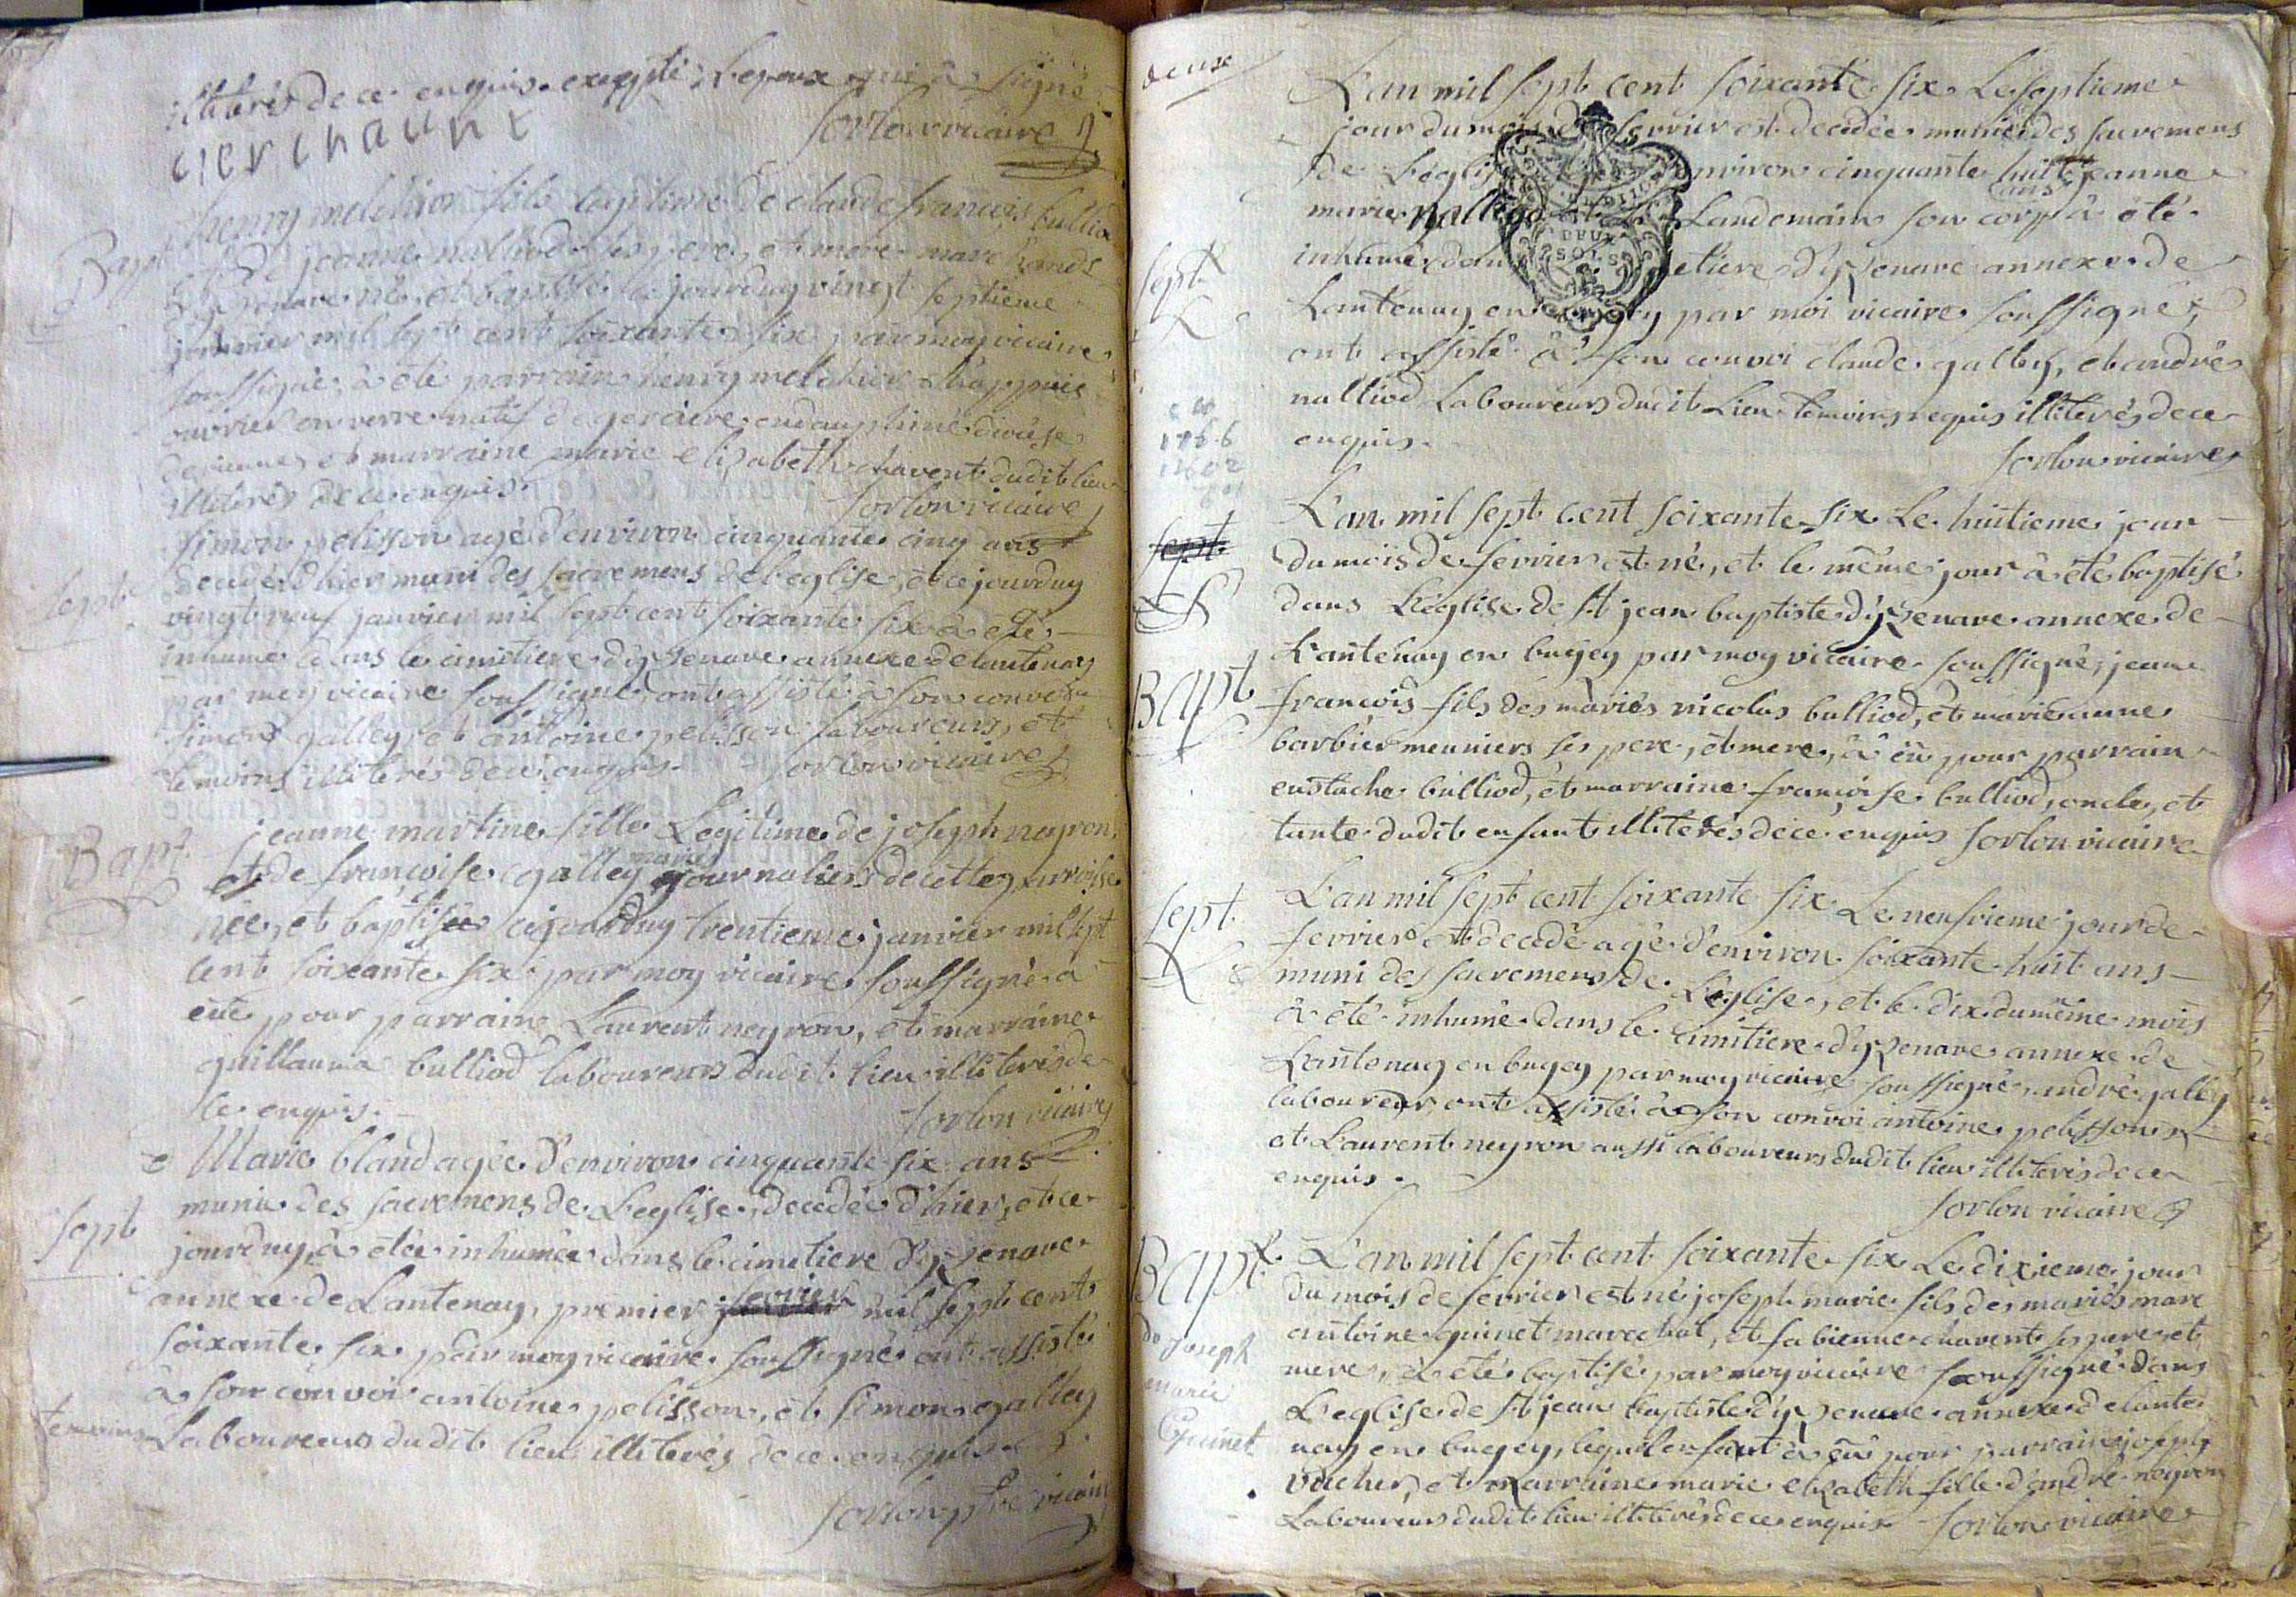 illiterés de ce enquis. excepté L'epoux qui à signé
sorlon vicaire
Bapt
henry melchior fils legitime de claude françois bulliod
et de jeanne nalliod ses pere, et mere marchands
d'yzenave né, et baptisé ce jourduy vingt septieme
janvier mil sept cent soixante six par moy vicaire
soussigné, à été parrain henry melchior
ouvrier en verre natif de en dauphiné diocese
de vienne et marraine marie elizabeth chavent dudit lieu
illiterés de ce enquis.
sorlon vicaire
Sept
simon pelisson agé d'environ cinquante cinq ans
decedé d'hier muni des sacremens de l'eglise, et ce jourduy
vingt neuf janvier mil sept cent soixante six à été
inhumé dans le cimetiere d'yzenave annexe de lantenay
par moy vicaire soussigné, ont assisté à son convoi
simon galley, et antoine pelisson laboureurs, et
temoins illiterés de ce enquis. sorlon vicaire
Bapt
jeanne martine fille Legitime de joseph neyron
et de françoise galley mariés journaliers de cette parroisse
née, et baptisée cejourduy trentieme janvier mil sept
cent soixante six par moy vicaire soussigné a
eüe pour parrain Laurent neyron, et marraine
guillauma bulliod laboureurs dudit lieu illiterés de
ce enquis.
sorlon vicaire
Marie bland agée d'environ cinquante six ans
munie des sacremens de L'eglise, decedée d'hier, et ce
Sept
jourduy, à étée inhumée dans le cimetiere d'yzenave
annexe de Lantenay, premier fevrier mil sept cent
soixante six par moy vicaire soussigné ont assisté
à son convoi antoine pelisson, et simon galley
temoins Laboureurs dudit lieu illiterés de ce enquis
sorlon ptre vicaire
deux
L'an mil sept cent soixante six Le septieme
jour du mois de fevrier est decedée munie des sacremens
de L'eglise environ cinquante huit ans jeanne
marie Landemain son corp à été
DEUX
SOLS
Sept
inhumé dans etiere d'yzenave annexe de
Lantenay en bugey par moi vicaire soussigné,
ont assisté à son convoi claude galley, et andré
nalliod Laboureurs dudit Lieu temoins requis illiterés de ce
1766
enquis.
sorlon vicaire
L'an mil sept cent soixante six Le huitieme jour
sept
du mois de fevrier est né, et le même jour à été baptisé
dans L'eglise de St jean baptiste d'yzenave annexe de
Lantenay en bugey par moy vicaire soussigné, jean
Bapt
françois fils des mariés nicolas bulliod, et marie anne
barbier meuniers ses pere, et mere, à eü pour parrain
eustache bulliod, et marraine françoise bulliod, oncle, et
tante dudit enfant illiterés de ce enquis sorlon vicaire
Sept
L'an mil sept cent soixante six Le neufvieme jour de
fevrier est decedé agé d'environ soixante huit ans
muni des sacremens de L'eglise, et le dix du même mois
à été inhumé dans le cimitiere d'yzenave annexe de
Lantenay en bugey par moy vicaire soussigné, andré galley
laboureur, ont assisté à son convoi antoine pelisson
et Laurent neyron aussi laboureurs dudit lieu illiterés de ce
enquis.
sorlon vicaire
Bapt
L'an mil sept cent soixante six Le dixieme jour
du mois de fevrier est né joseph marie fils des mariés marc
de Joseph
marie
Guinet
antoine guinet marechal, et fabienne chavent ses pere et
mere, à été baptisé par moy vicaire soussigné dans
L'eglise de St jean baptiste d'yzenave annexe de lante
nay en bugey, lequel enfant à eü pour parrain joseph
vucher, et marraine marie elizabeth fille d'andré neyron
Laboureurs dudit lieu illiterés de ce enquis sorlon vicaire